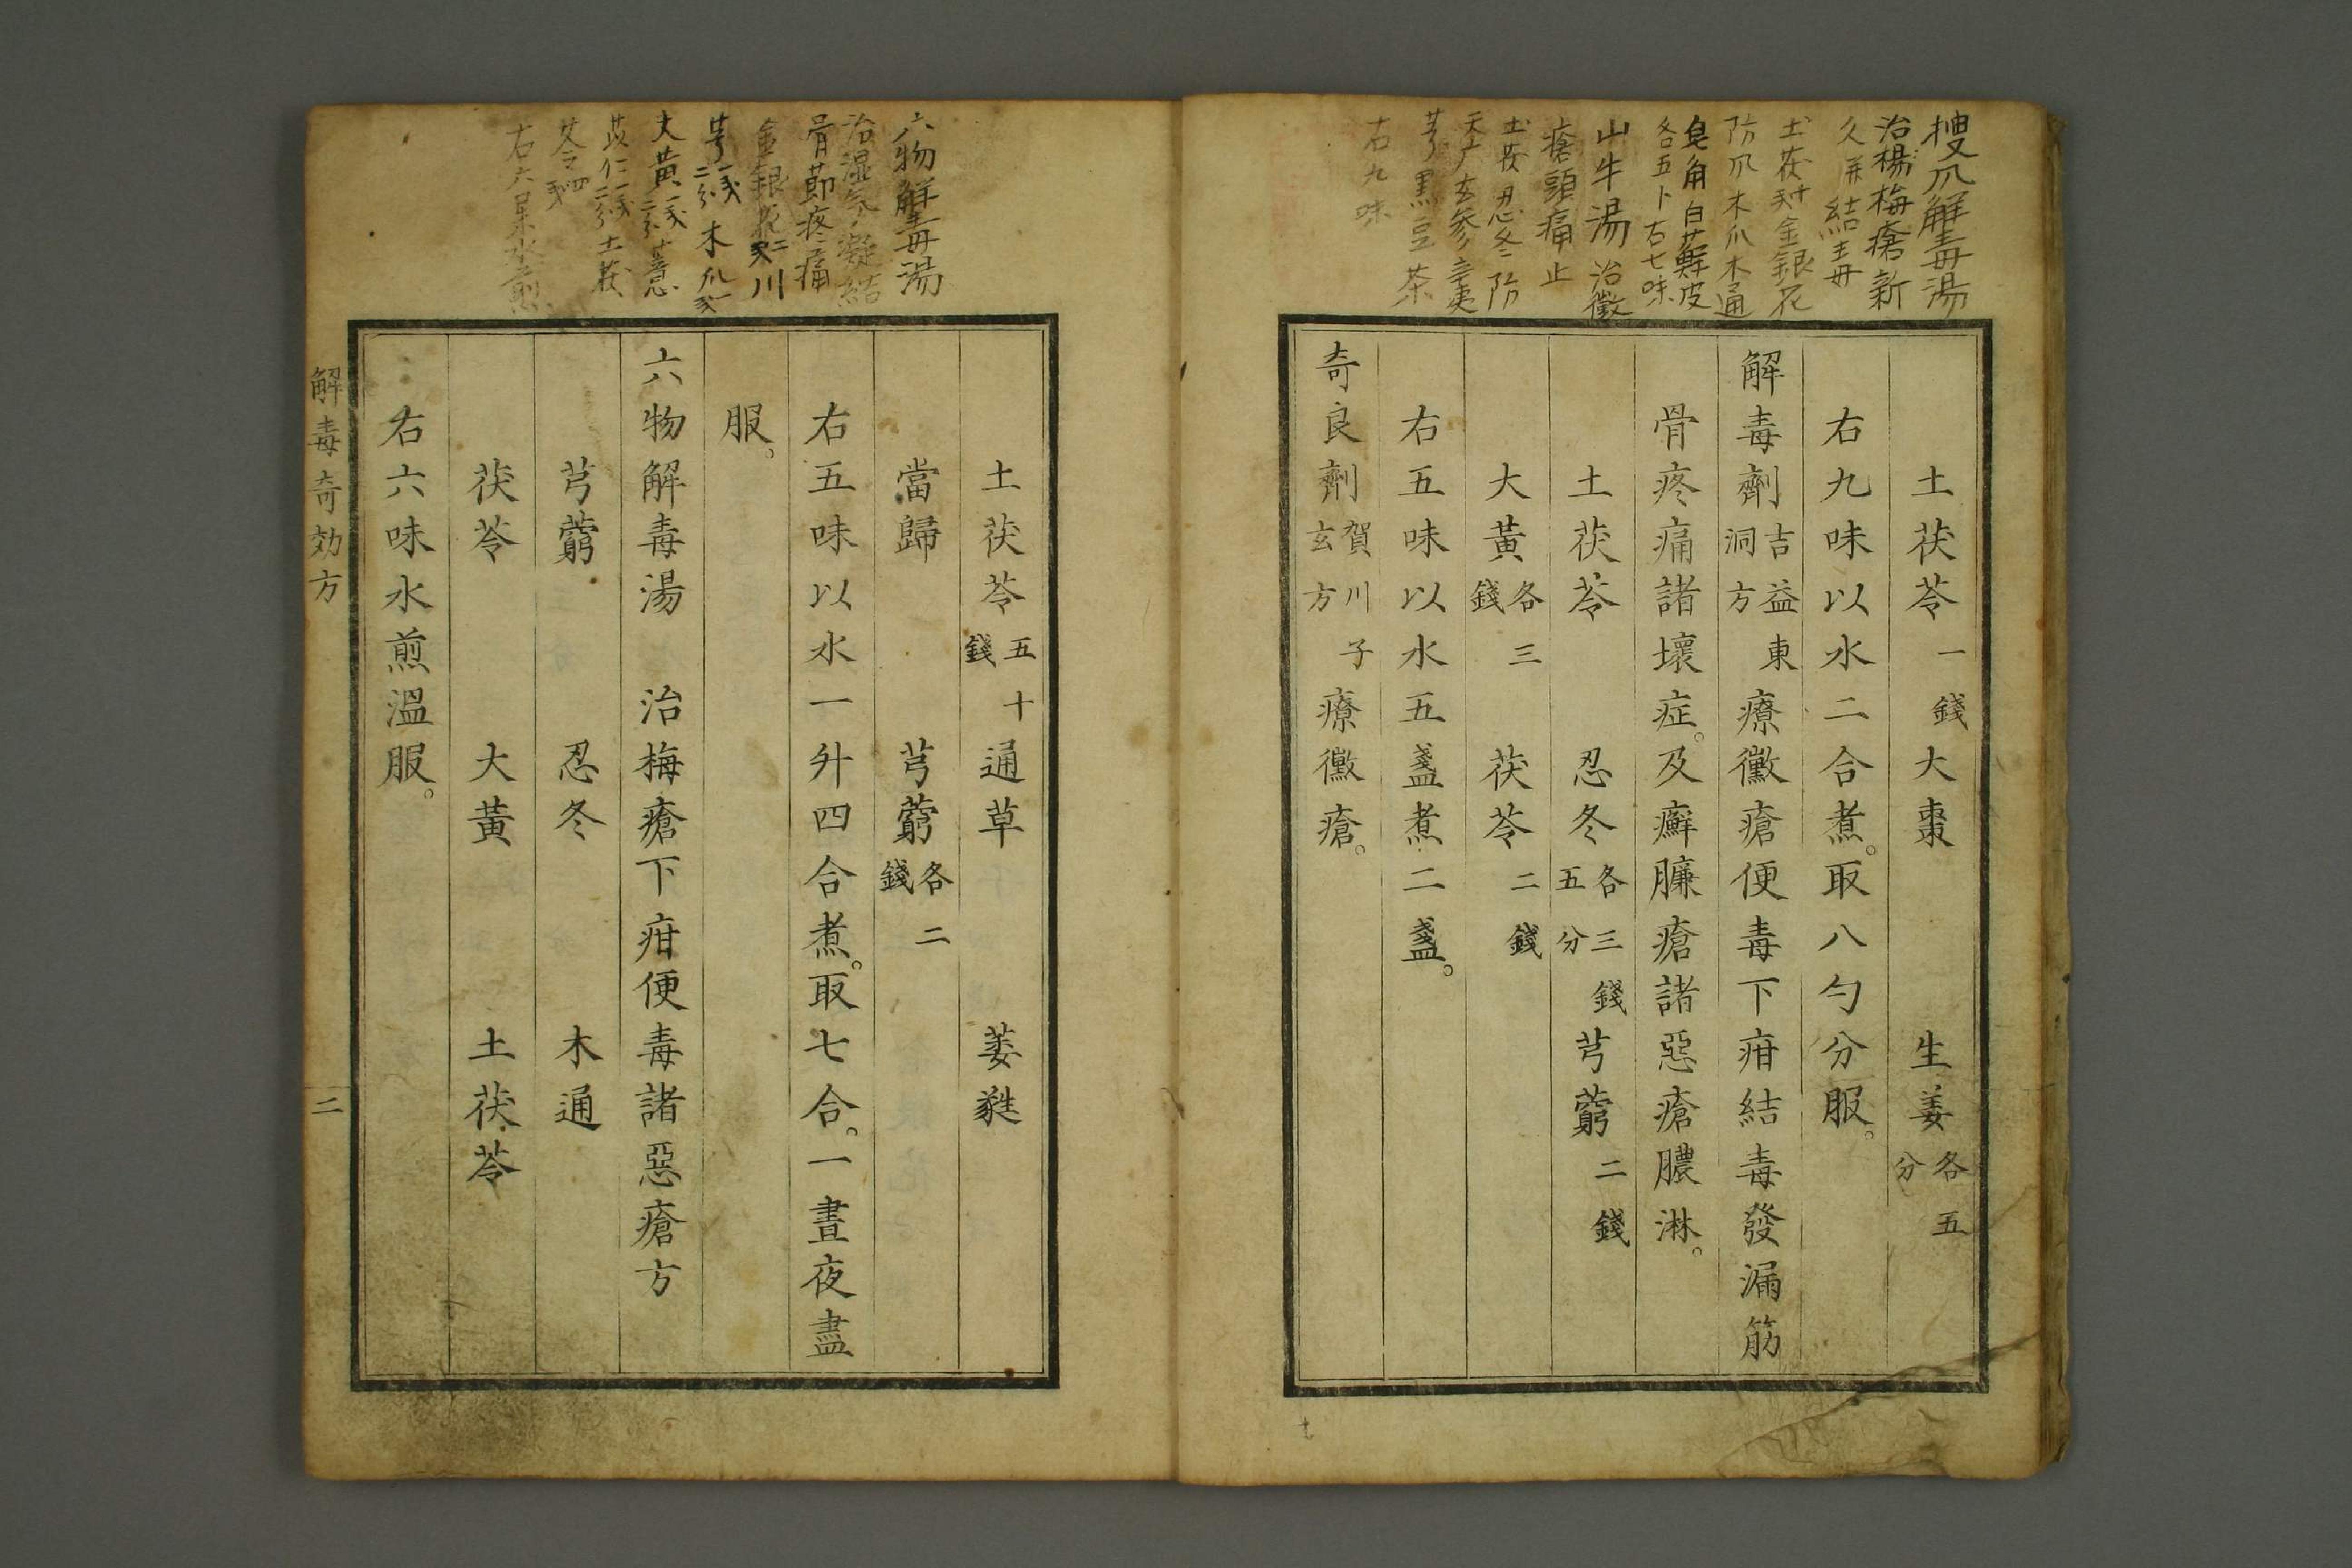 搜爪解毒湯
治楊梅瘡新
久并結毒
土茯
金銀花
防爪木爪木通
皂角白蘚皮
各五卜右七味
山牛湯 治黴
瘡頭痛止
土茯忍冬防
天广玄参棗
芎黒豆茶
右九味
土茯苓一錢大棗 生姜各五分
右九味以水二合煮。取八勺分服。
解毒劑吉益東洞方療黴瘡便毒下疳結毒發漏筋
骨疼痛諸壞症。及癬臁瘡諸惡瘡膿淋。
土茯苓 忍冬各三錢五分芎藭二錢
大黃各三錢 茯苓二錢
右五味以水五盞煮二盞。
奇良劑賀川子玄方療黴瘡。
六物解毒湯
治湿気凝結
骨節疼痛
金銀花二川
芎一二分木爪
大黃二分薏
苡仁二分土茯
苓四
右六味水煎
土茯苓五十錢通草 萎蕤
當歸 芎藭各二錢
右五味以水一升四合煮。取七合。一晝夜盡
服。
六物解毒湯 治梅瘡下疳便毒諸惡瘡方
芎藭 忍冬 木通
茯苓 大黃 土茯苓
右六味水煎溫服。
解毒奇効方 二